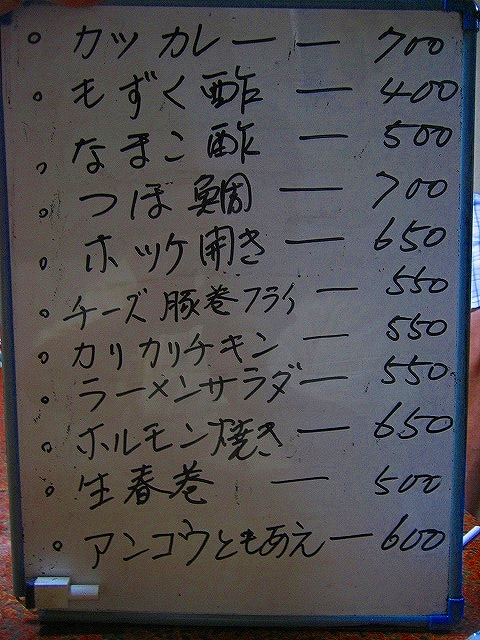 ○ カツカレー — 700
○ もずく酢 — 400
○ なまこ酢 — 500
○ つぼ鯛 — 700
○ ホッケ開き — 650
○ チーズ豚巻フライ — 550
○ カリカリチキン — 550
○ ラーメンサラダ — 550
○ ホルモン焼き — 650
○ 生春巻 — 500
○ アンコウともあえ — 600